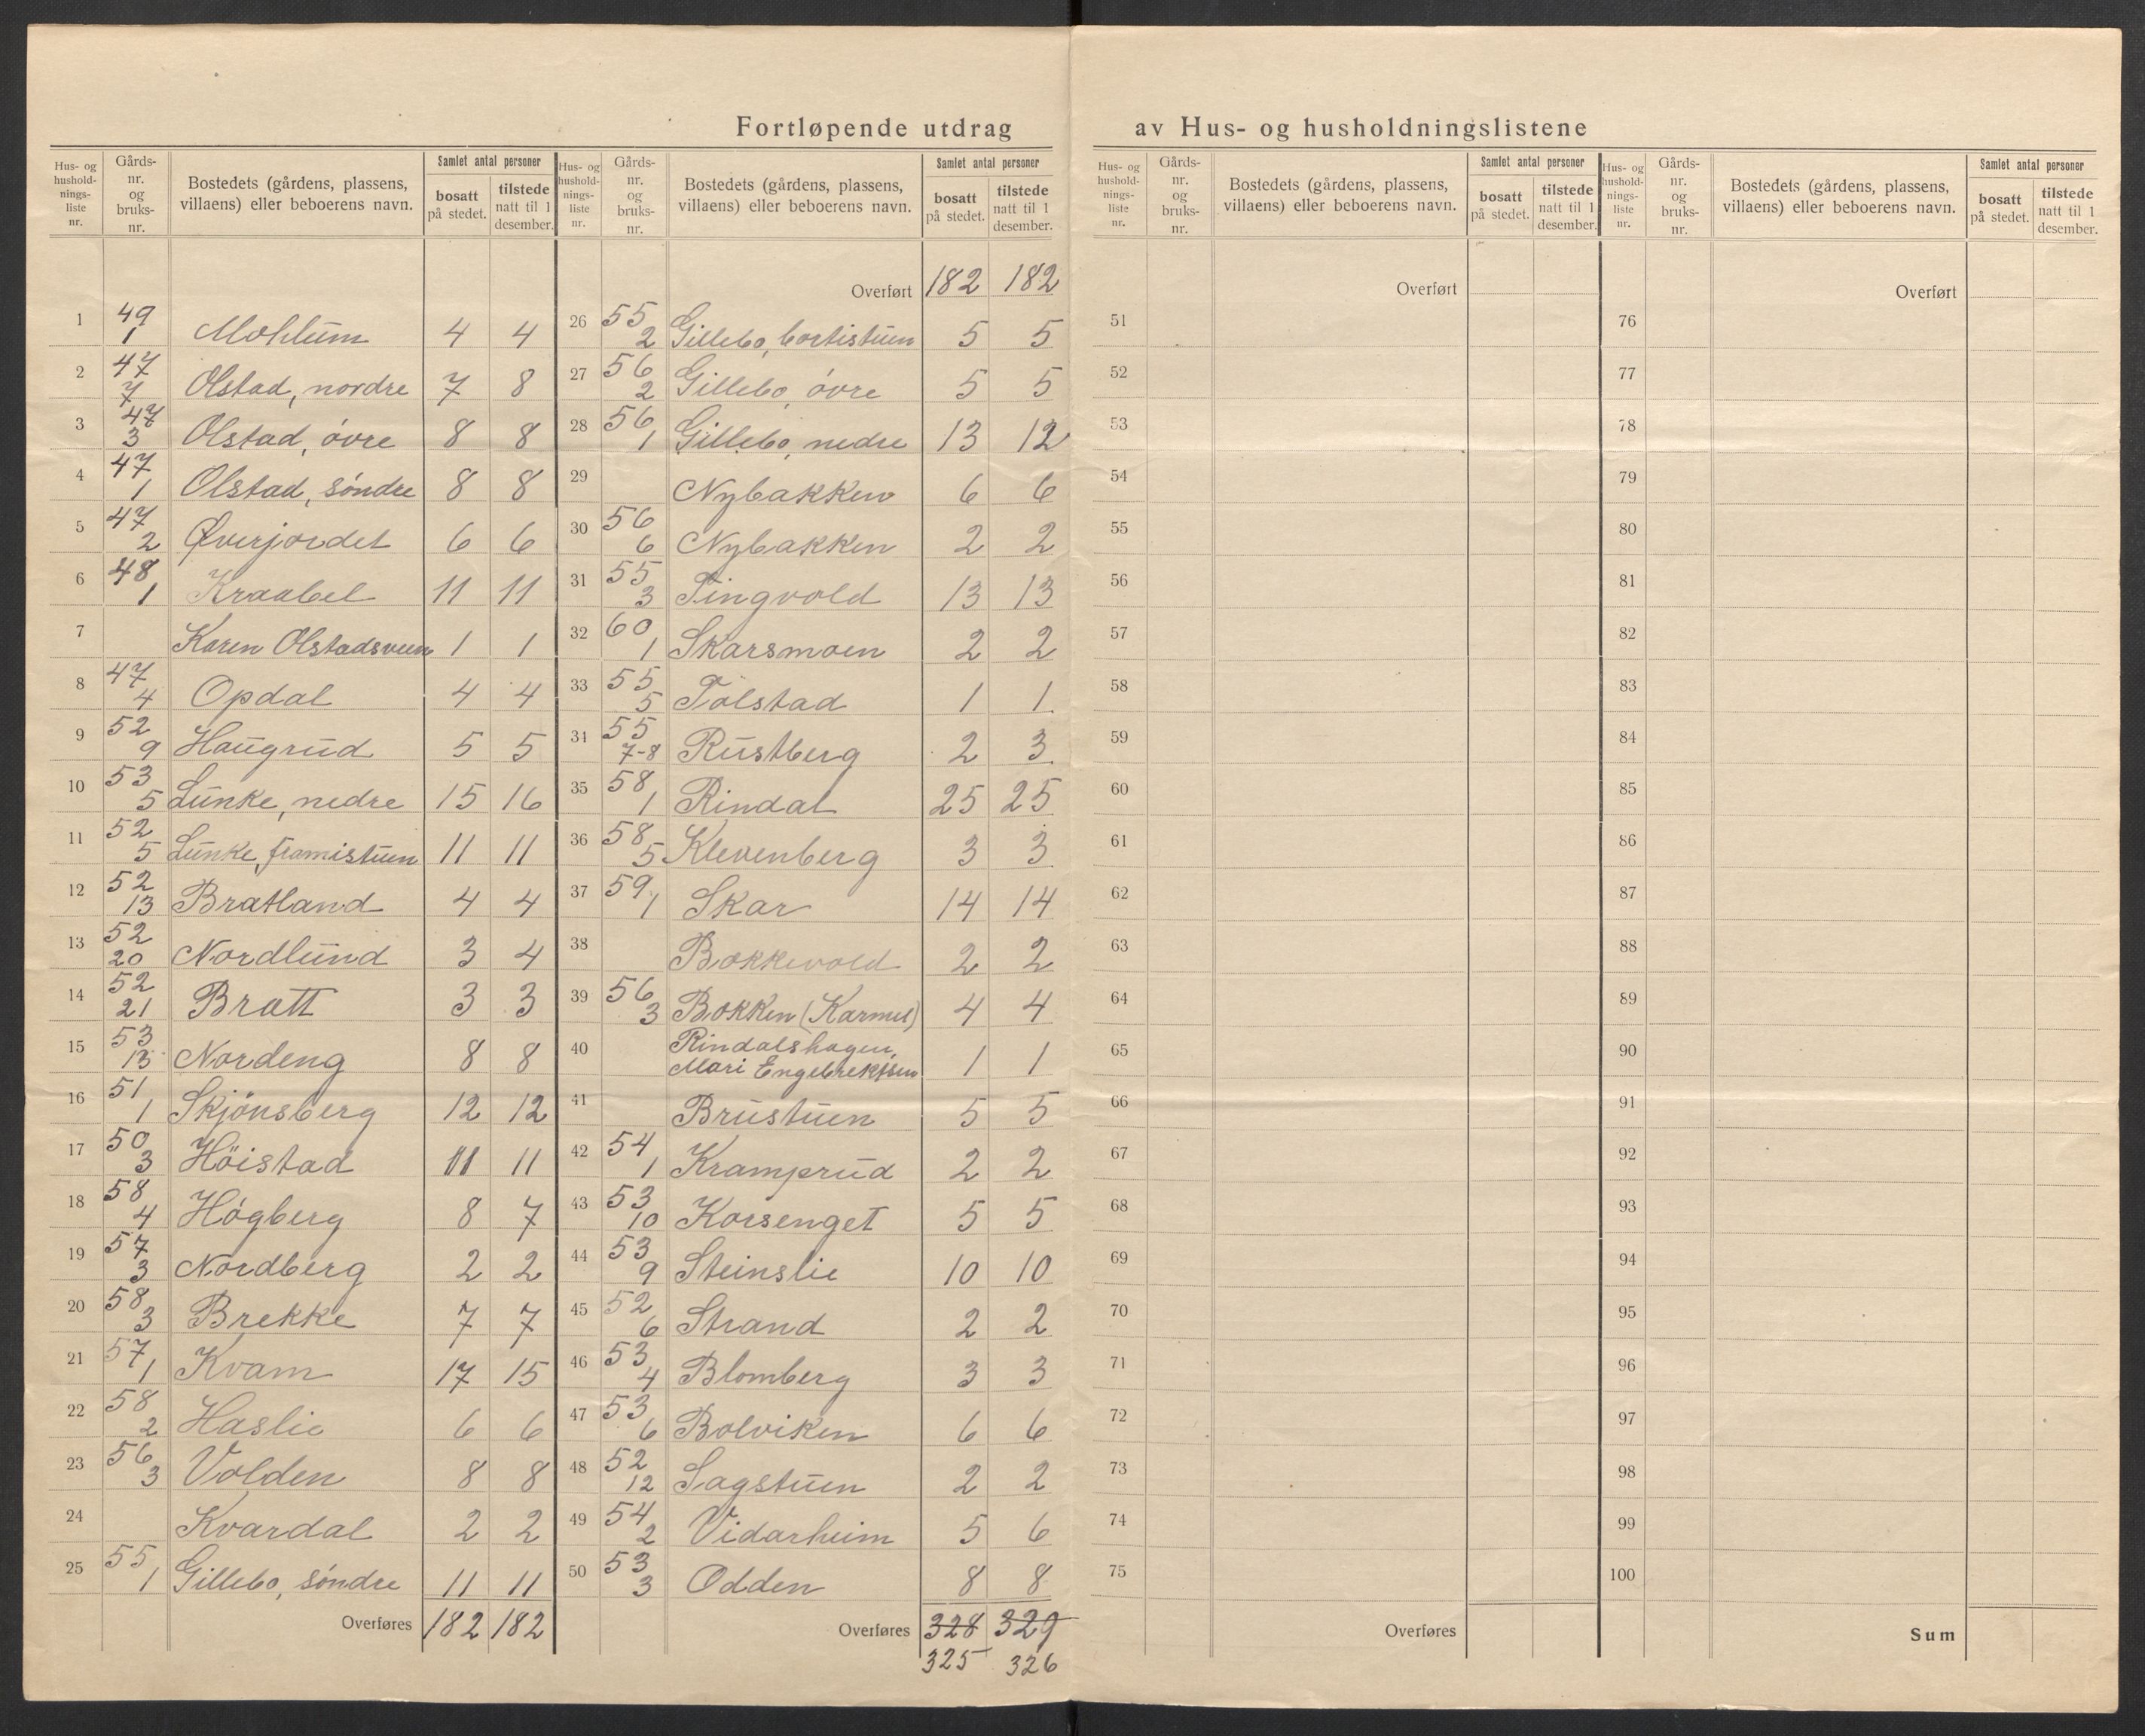 Fortløpende utdrag av Hus- og husholdningslistene
Hus- og hushold-nings-liste nr. | Gårds-nr. og bruks-nr. | Bostedets (gårdens, plassens, villaens) eller beboerens navn. | Samlet antal personer | bosatt på stedet. | tilstede natt til 1 desember.
1 49 1 Mohlum 4 4
2 47 7 Olstad, nordre 7 8
3 47 3 Olstad, övre 8 8
4 47 1 Olstad, söndre 8 8
5 47 2 Øverjordet 6 6
6 48 1 Kraabel 11 11
7 Karen Olstadsveen 1 1
8 47 4 Opdal 4 4
9 52 9 Haugrud 5 5
10 53 5 Lunke, nedre 15 16
11 52 5 Lunke, framistuen 11 11
12 52 13 Bratland 4 4
13 52 20 Nordlund 3 4
14 52 21 Bratt 3 3
15 53 13 Nordeng 8 8
16 51 1 Skjönsberg 12 12
17 50 3 Höistad 11 11
18 58 4 Högberg 8 7
19 57 3 Nordberg 2 2
20 58 3 Brekke 7 7
21 57 1 Kvam 17 15
22 58 2 Haslie 6 6
23 56 3 Volden 8 8
24 Kvardal 2 2
25 55 1 Gillebo, söndre 11 11
Overføres 182 182
Hus- og hushold-nings-liste nr. | Gårds-nr. og bruks-nr. | Bostedets (gårdens, plassens, villaens) eller beboerens navn. | Samlet antal personer | bosatt på stedet. | tilstede natt til 1 desember.
Overført 182 182
26 55 2 Gillebo, bortistuen 5 5
27 56 2 Gillebo, övre 5 5
28 56 1 Gillebo, nedre 13 12
29 Nybakken 6 6
30 56 6 Nybakken 2 2
31 55 3 Tingvold 13 13
32 60 1 Skarsmoen 2 2
33 55 5 Tolstad 1 1
34 55 7-8 Rustberg 2 3
35 58 1 Rindal 25 25
36 58 5 Klevenberg 3 3
37 59 1 Skar 14 14
38 Bakkevold 2 2
39 56 3 Bakken (Karmel) 4 4
40 Rindalshagen,
Mari Engebrektsen 1 1
41 Brustuen 5 5
42 54 1 Kramprud 2 2
43 53 10 Korsenget 5 5
44 53 9 Steinslie 10 10
45 52 6 Strand 2 2
46 53 4 Blomberg 3 3
47 53 6 Bolviken 6 6
48 52 12 Sagstuen 2 2
49 54 2 Vidarheim 5 6
50 53 3 Odden 8 8
Overføres 328 329
325 326
Hus- og hushold-nings-liste nr. | Gårds-nr. og bruks-nr. | Bostedets (gårdens, plassens, villaens) eller beboerens navn. | Samlet antal personer | bosatt på stedet. | tilstede natt til 1 desember.
Overført
51
52
53
54
55
56
57
58
59
60
61
62
63
64
65
66
67
68
69
70
71
72
73
74
75
Overføres
Hus- og hushold-nings-liste nr. | Gårds-nr. og bruks-nr. | Bostedets (gårdens, plassens, villaens) eller beboerens navn. | Samlet antal personer | bosatt på stedet. | tilstede natt til 1 desember.
Overført
76
77
78
79
80
81
82
83
84
85
86
87
88
89
90
91
92
93
94
95
96
97
98
99
100
Sum